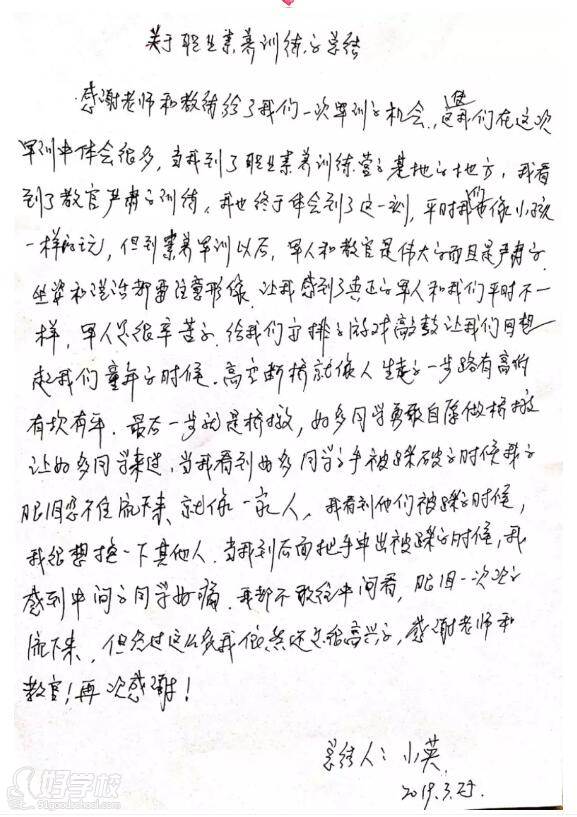 关于职业素养训练的总结
感谢老师和教练给了我们一次军训的机会,这让我们在这次
军训中体会很多,当我到了职业素养训练营的基地的地方,我看
到了教官严肃的训练,我也终于体会到了这一刻,平时我们都像小孩
一样的玩,但到素养军训以后,军人和教官是伟大的而且是严肃的
坐姿和说话都要注意形像,让我感到了真正的军人和我们平时不一
样,军人是很辛苦的,给我们安排的游戏敲鼓让我们回想
起我们童年的时候,高空断桥就像人生走的一步路有高有
有坎有平,最后一步就是桥墩,好多同学勇敢自愿做桥墩
让好多同学来过,当我看到好多同学的手被踩破的时候我的
眼泪忍不住流下来,就像一家人,我看到他们被踩的时候,
我很想换一下其他人,当我到后面把手伸出被踩的时候,我
感到中间的同学好痛,我都不敢往中间看,眼泪一次次的
流下来,但经过这么多我依然还是很高兴的,感谢老师和
教官!再次感谢!
总结人:小英
2019.3.25.
好学校
91goodschool.com